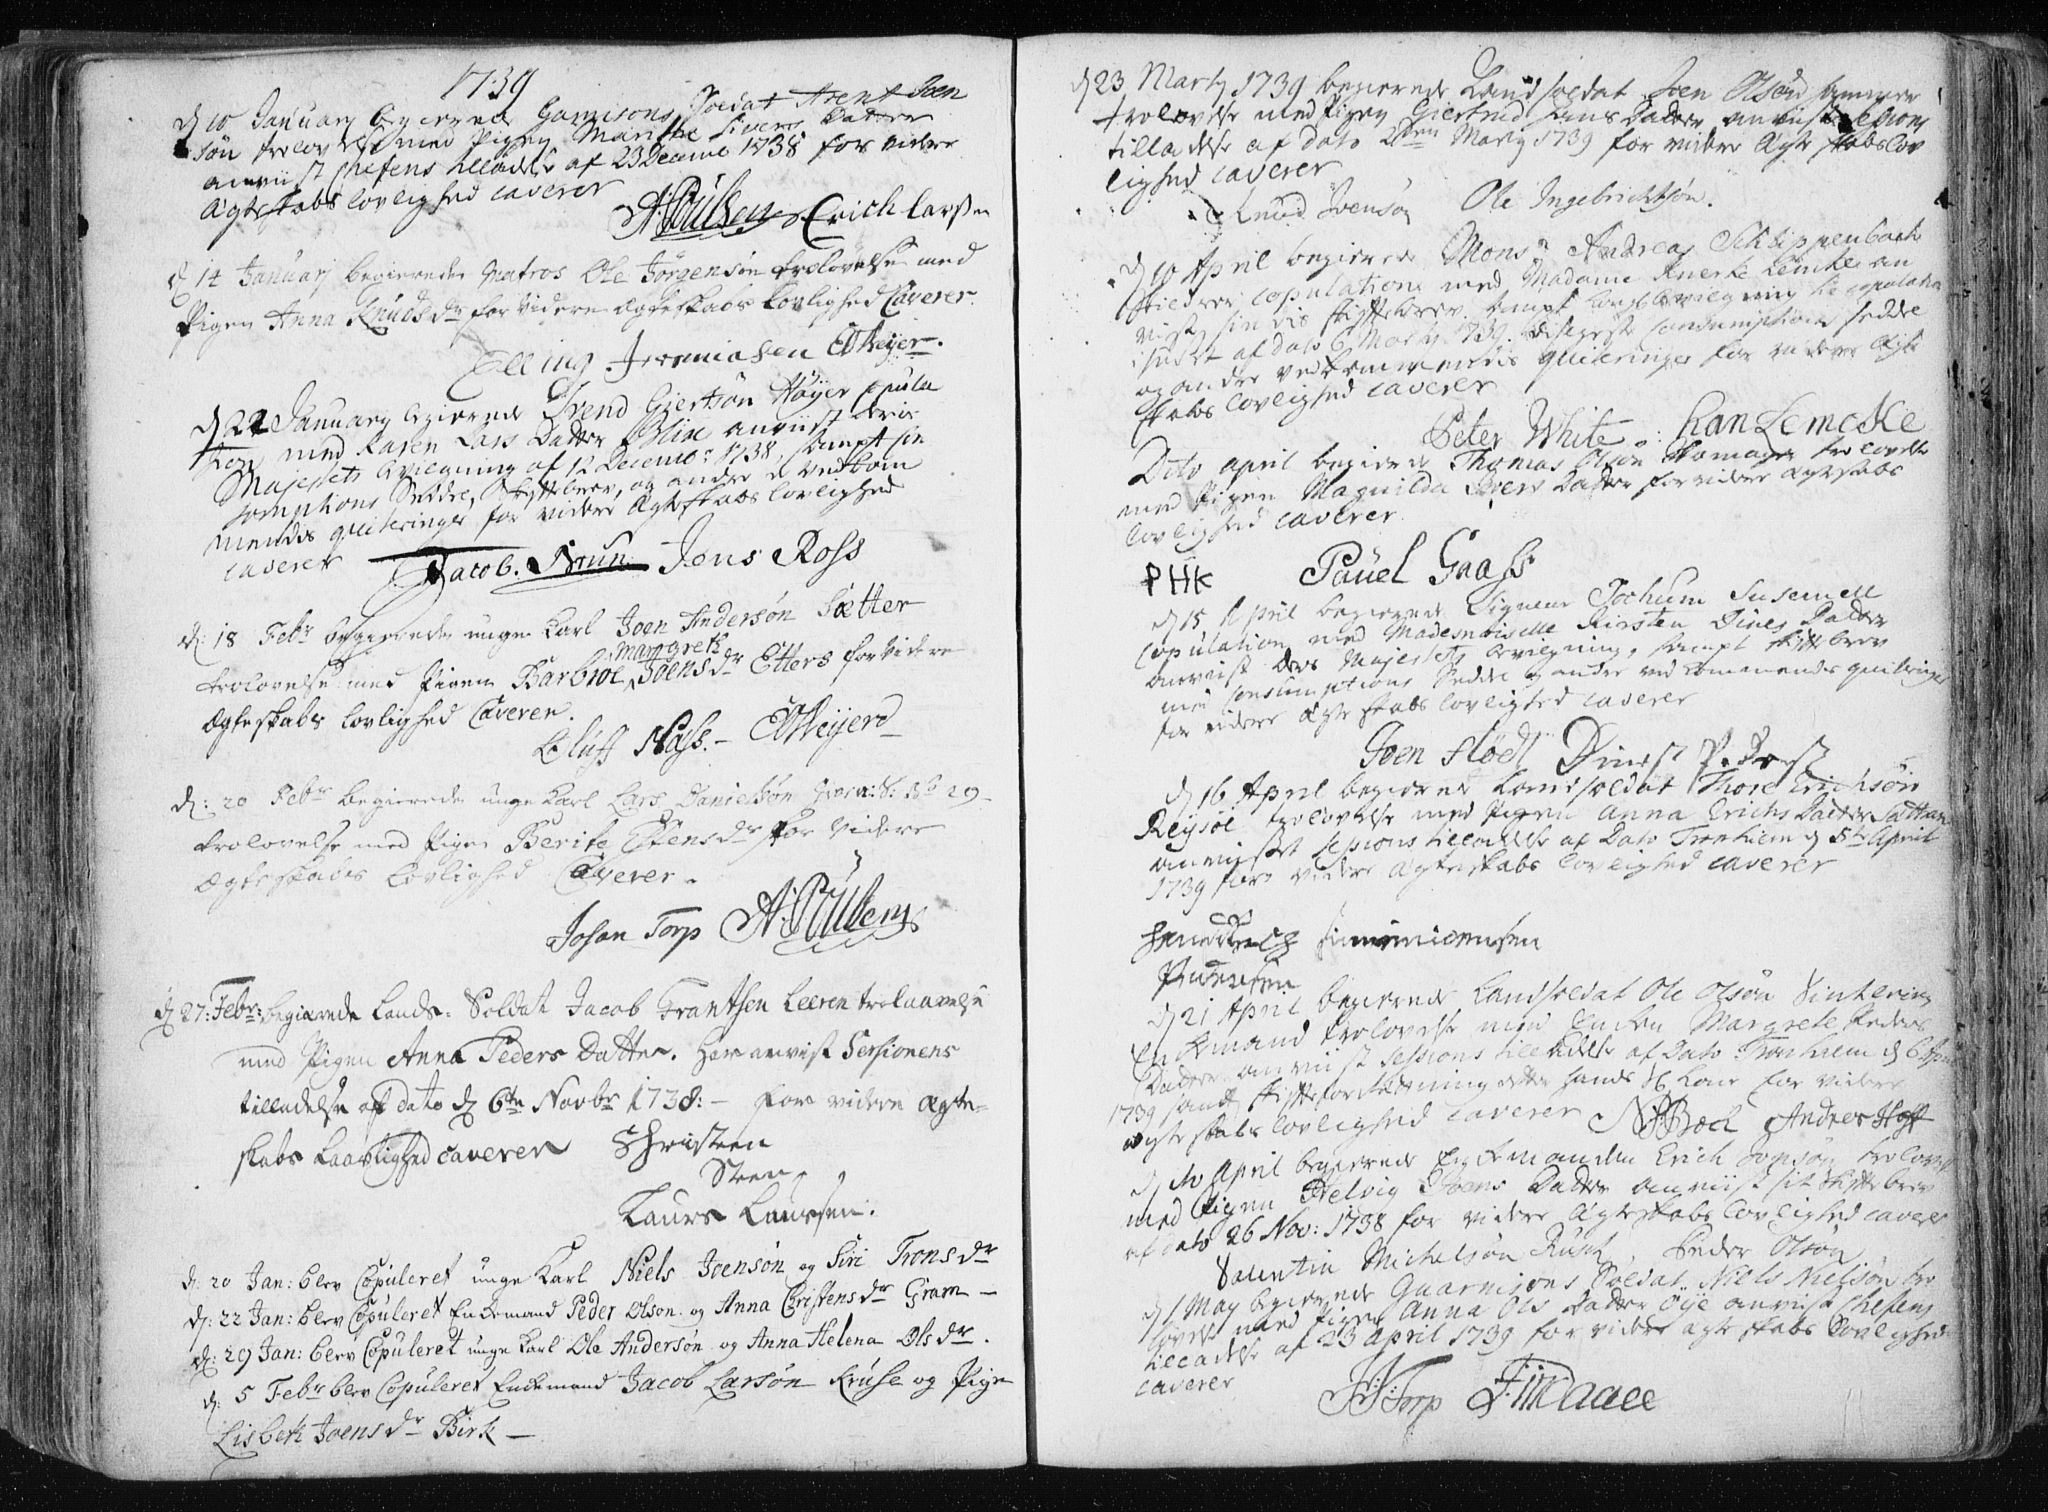 1739
d 10 January begierede Garnisons Soldat Arent Joen
søn trolovelse med Pigen Marithe Sivers Datter
anviist chefens tilladelse af 23 Decemb 1738 for videre
Ægteskabs lovlighed caverer
A Poulsen Erich larsen
d 14 January begierede Matros Ole Jørgensøn trolovelse med
Pigen Anna Knudsdr for videre ægteskabs lovlighed Caverer.
Elling Jeremiasen EMeyer.
d 22 January begierede Svend Giertsøn Høyer Copula
tion med Karen Lars Datter Blix anviist deris
Majestets bevilgning af 12 Decemb: 1738, sampt Con
somptions Seddel, Skiftebrev, og andre vedkom
mendes qviteringer for videre Ægteskabs lovlighed
caverer Jacob. Brun Jens Ross
d: 18 Febr begierede unge Karl Joen Andersøn Sætter
Margreth
trolovelse med Pigen Barbroe Joensdr Etters for videre
Ægteskabs lovlighed Caverer.
Oluff Nass. EMeyer
d: 20 Febr begierede unge Karl Lars Danielsøn No 29
trolovelse med Pigen Berite Estensdr for videre
Ægteskabs Lovlighed Caverer.
Johan Torp A Poulsen
d 27: Febr: begierede Lands: Soldat Jacob Frantsen Leeren trolaavelse
med Pigen Anna Peders Datter. Haver anvist Sessionens
tilladelse af dato d 6te Novbr 1738: – for videre ægte-
skabs Laavlighed caverer Christen
Steen
Laurs Laursen.
d: 20 Jan: blev Copuleret unge Karl Niels Joensøn og Siri Tronsdr
d: 22 Jan: blev Copuleret Enkemand Peder Olson og Anna Christensdr Gram –
d: 29 Jan: blev Copuleret unge Karl Ole Andersøn og Anna Helena Olsdr.
d: 5 Febr blev Copuleret Enkemand Jacob Larsøn Kruse og Pige
Lisbeth Joensdr Birk –
d 23 Marty 1739 begierede Landsoldat Joen Olsøn
trolovelse med Pigen Giertrud Hans Datter anviist Sessions
tilladelse af dato 2den Marty 1739 for videre Ægteskabs lov
lighed caverer
Knud Svensøn Ole Ingebrichtsøn.
d 10 April begierede Monsr Andreas Schippenbach
copulation med Madame Lemke an
viist sin skiftebrev sampt Kongl bevilgning til copulation
i huuset af dato 6 Marty 1739. Consumptions seddel
og andre vedkommendes qviteringer for videre Ægte
skabs lovlighed caverer
Peter White Lemcke
Dito april begierede Thomas Olsøn trolovelse
med Pigen Magnilda Datter for videre Ægteskabs
lovlighed caverer
PHK Pauel Graffs
d 15 April begierede Signeur Jochum Susemell
Copulation med Mademoiselle Kirsten Dines Datter
anviist Deris Majestets bevilgning, sampt skiftebrev
med Consumptions Seddel og andre vedkommendes qviteringer
for videre Ægteskabs lovlighed caverer
Joen Flødt Dines Peders
d 16 April begierede Landsoldat Thore Erichsøn
Reysøe trolovelse med Pigen Anna Erichs Datter
anviist sessions tilladelse af Dato Tronhiem d 5te April
1739 for videre Ægteskabs lovlighed caverer
Pedersen
d 21 April begierede Landsoldat Ole Olsøn Vintering
Enkemand trolovelse med Enken Margrete Peders
Datter anviist sessions tilladelse af Dato Tronhiem d 6 April
1739 samt skifteforretning efter hands Sl. Kone for videre
Ægteskabs lovlighed caverer Andres Hoff
d April begierede Enkemanden Erich trolovelse
med Pigen Helvig Joens Datter anviist sit skiftebrev
af dato 26 Nov: 1738 for videre Ægteskabs lovlighed caverer
Valentin Michelsøn Rusk Peder Olsøn
d 1 May begierede Guarnisons Soldat Niels Nielsøn tro
lovelse med Pigen Anna Ols Datter Øye anviist Chefens
tilladelse af 23 April 1739 for videre ægteskabs Lovlighed
caverer
Torp